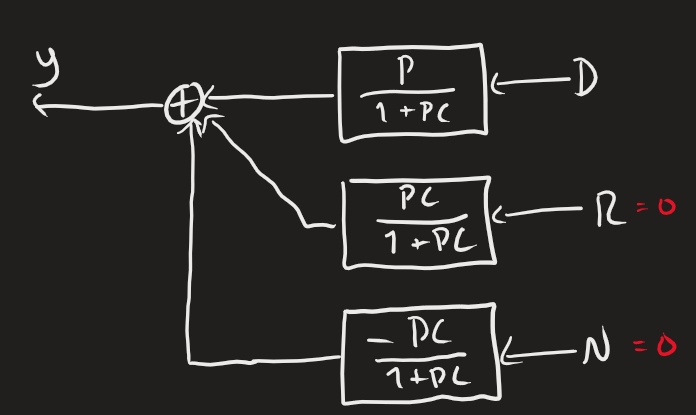 y
+
P
1 + PC
D
PC
1 + PC
R = 0
- PC
1 + PC
N = 0